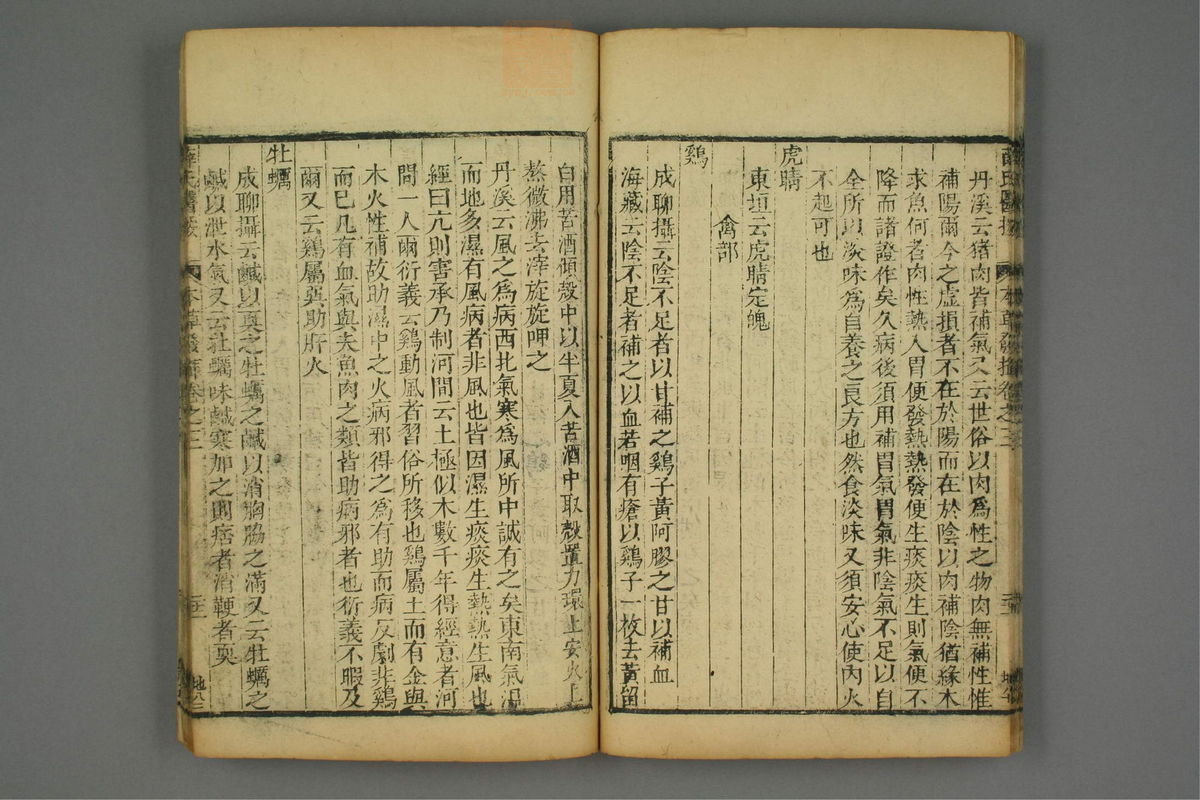 丹溪云猪肉皆補氣又云世俗以肉爲性之物肉無補性惟
補陽爾今之虛損者不在於陽而在於陰以肉補陰猶緣木
求魚何者肉性熱入胃便發熱熱發便生痰痰生則氣便不
降而諸證作矣久病後須用補胃氣胃氣非陰氣不足以自
全所以淡味爲自養之良方也然食淡味又須安心使內火
不起可也
虎睛
東垣云虎睛定魄
禽部
鷄
成聊攝云陰不足者以甘補之鷄子黃阿膠之甘以補血
海藏云陰不足者補之以血若咽有瘡以鷄子一枚去黃留
白用苦酒傾殼中以半夏入苦酒中取殼置刀環上安火上
熬微沸去滓旋旋呷之
丹溪云風之爲病西北氣寒爲風所中誠有之矣東南氣溫
而地多濕有風病者非風也皆因濕生痰痰生熱熱生風也
經曰亢則害承乃制河間云土極似木數千年得經意者河
間一人爾衍義云鷄動風者習俗所移也鷄屬土而有金與
木火性補故助濕中之火病邪得之爲有助而病反劇非鷄
而巳凡有血氣與夫魚肉之類皆助病邪者也衍義不暇及
爾又云鷄屬巽助肝火
牡蠣
成聊攝云鹹以耎之牡蠣之鹹以消胸脇之滿又云牡蠣之
鹹以泄水氣又云牡蠣味鹹寒加之則痞者消鞕者耎
薛氏醫按
本草發揮卷之三